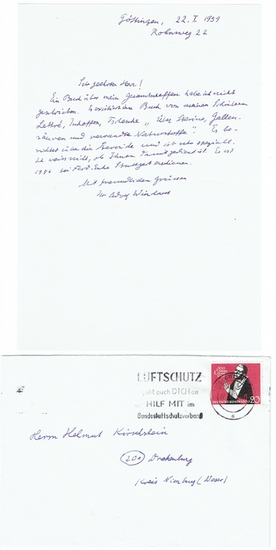 Göttingen, 22. X. 1959
Rohnsweg 22
Sehr geehrter Herr!
Ein Buch über mein Gesamtschaffen habe ich nicht
geschrieben. Es existiert ein Buch von meinen Schülern
Lettré, Inhoffen, Tschesche „Über Sterine, Gallen-
säuren und verwandte Naturstoffe“. Es be-
richtet über die Steroide und ist sehr speziell.
ob Ihnen damit gedient ist. Es ist
bei Ferd. Enke Stuttgart erschienen.
Mit freundlichen Grüssen
Ihr Adolf Windaus
LUFTSCHUTZ
geht auch DICH an
HILF MIT im
Bundesluftschutzverband
20
Herrn Helmut Kirschstein
(20a) Drakenburg
Kreis Nienburg (Weser)